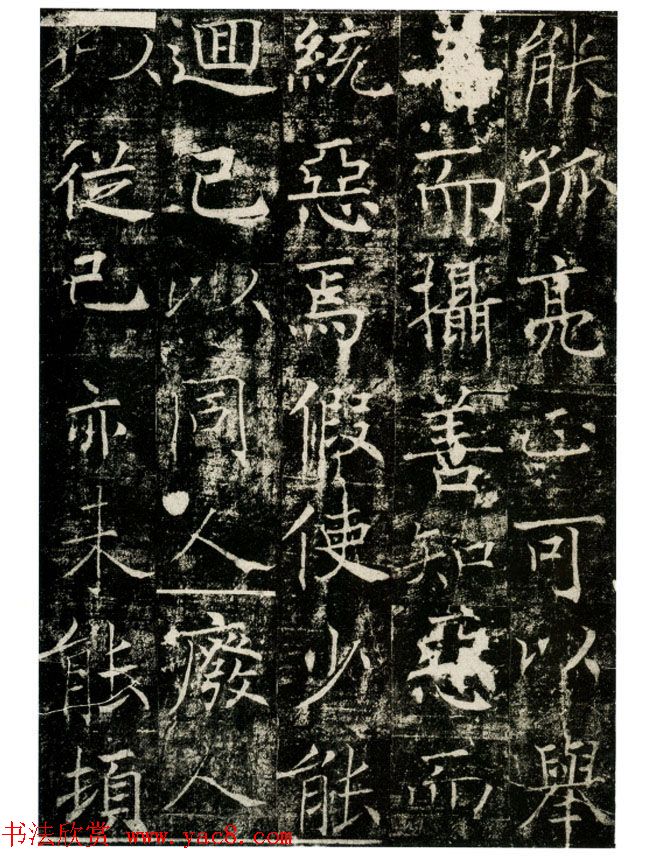 能孤亮正可以舉
而攝善知惡而
統惡焉假使少能
迴己以同人廢人
以從己亦未能頓
书法欣赏 www.yac8.com